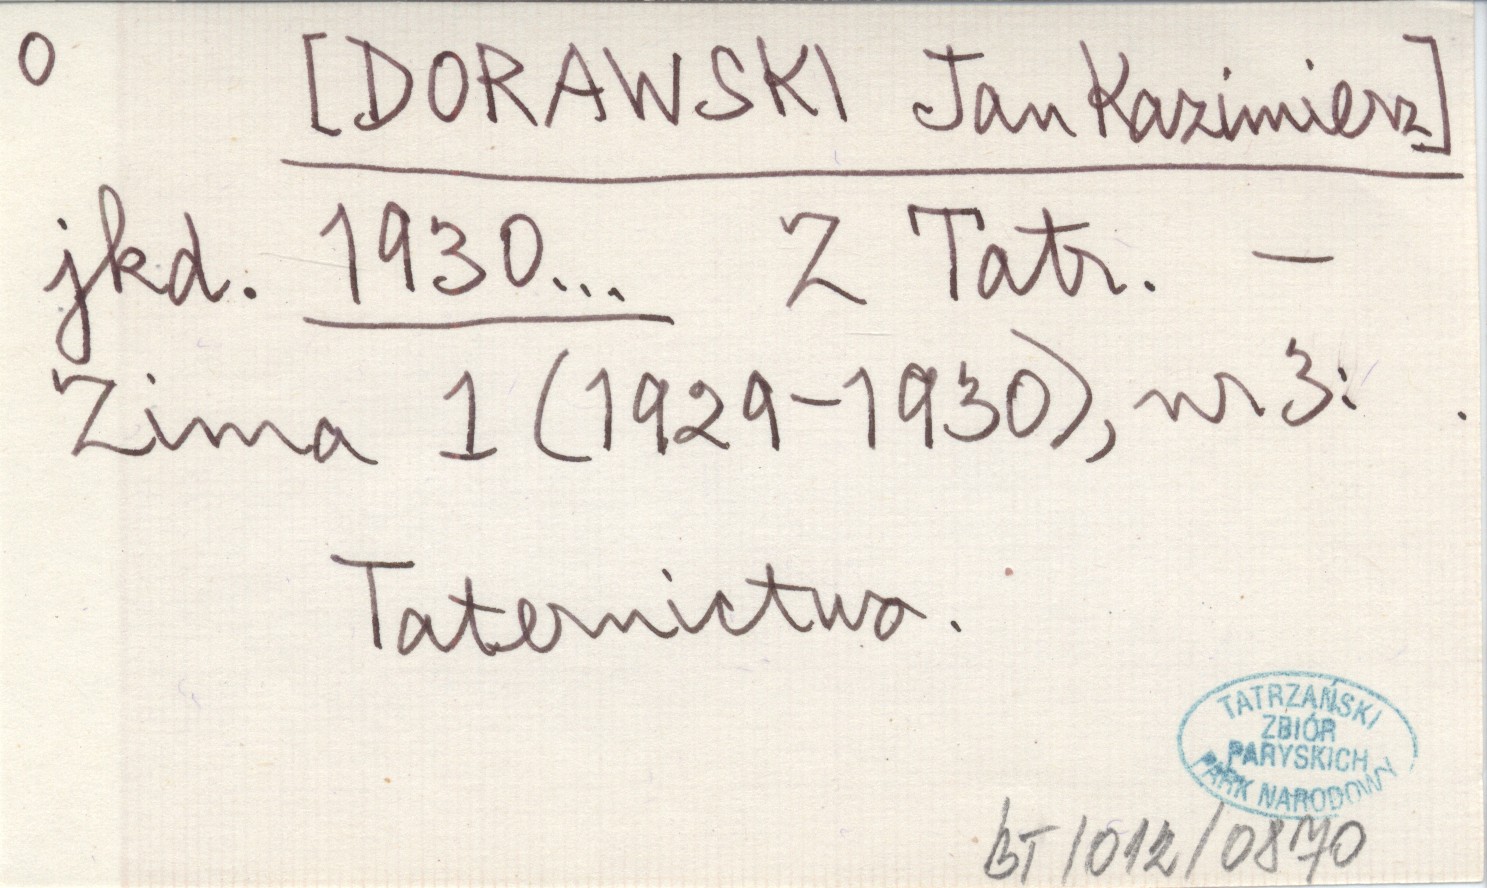 0 [DORAWSKI Jan Kazimierz]
jkd. 1930... Z Tatr. —
Zima 1 (1929-1930), nr 3: .
Taternictwo.
TATRZAŃSKI
ZBIÓR
PARYSKICH
PARK NARODOWY
BT/012/0870